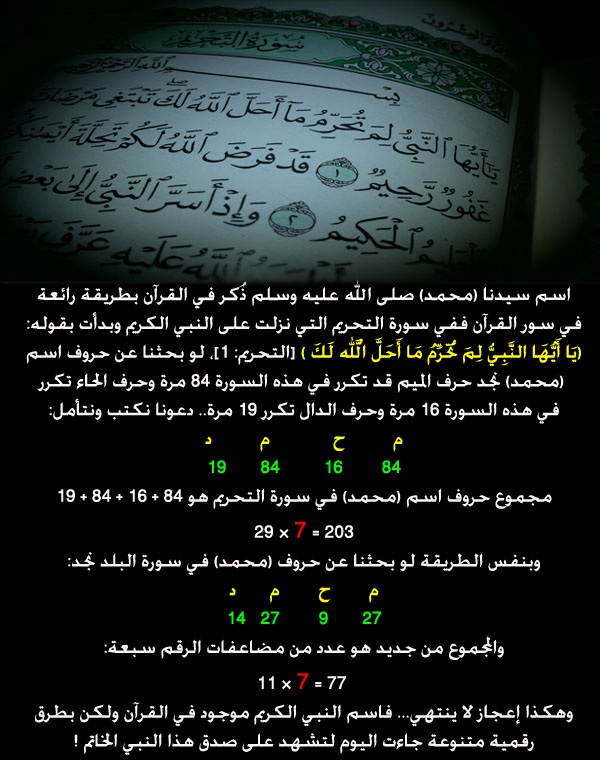 سُورَةُ التَّحْرِيمِ
بِسْمِ اللَّهِ الرَّحْمَٰنِ الرَّحِيمِ
يَٰٓأَيُّهَا ٱلنَّبِيُّ لِمَ تُحَرِّمُ مَآ أَحَلَّ ٱللَّهُ لَكَ تَبْتَغِي مَرْضَاتَ
غَفُورٌ رَّحِيمٌ ١ قَدْ فَرَضَ ٱللَّهُ لَكُمْ تَحِلَّةَ أَيْمَٰنِكُمْ
ٱلْحَكِيمُ ٢ وَإِذْ أَسَرَّ ٱلنَّبِيُّ إِلَىٰ بَعْضِ
ٱللَّهُ عَلَيْهِ عَرَّفَ
اسم سيدنا (محمد) صلى الله عليه وسلم ذُكر في القرآن بطريقة رائعة
في سور القرآن ففي سورة التحريم التي نزلت على النبي الكريم وبدأت بقوله:
(يَا أَيُّهَا النَّبِيُّ لِمَ تُحَرِّمُ مَا أَحَلَّ اللَّهُ لَكَ) [التحريم: 1]، لو بحثنا عن حروف اسم
(محمد) نجد حرف الميم قد تكرر في هذه السورة 84 مرة وحرف الحاء تكرر
في هذه السورة 16 مرة وحرف الدال تكرر 19 مرة.. دعونا نكتب ونتأمل:
م ح م د
84 16 84 19
مجموع حروف اسم (محمد) في سورة التحريم هو 84 + 16 + 84 + 19
203 = 7 × 29
وبنفس الطريقة لو بحثنا عن حروف (محمد) في سورة البلد نجد:
م ح م د
27 9 27 14
والمجموع من جديد هو عدد من مضاعفات الرقم سبعة:
77 = 7 × 11
وهكذا إعجاز لا ينتهي... فاسم النبي الكريم موجود في القرآن ولكن بطرق
رقمية متنوعة جاءت اليوم لتشهد على صدق هذا النبي الخاتم !